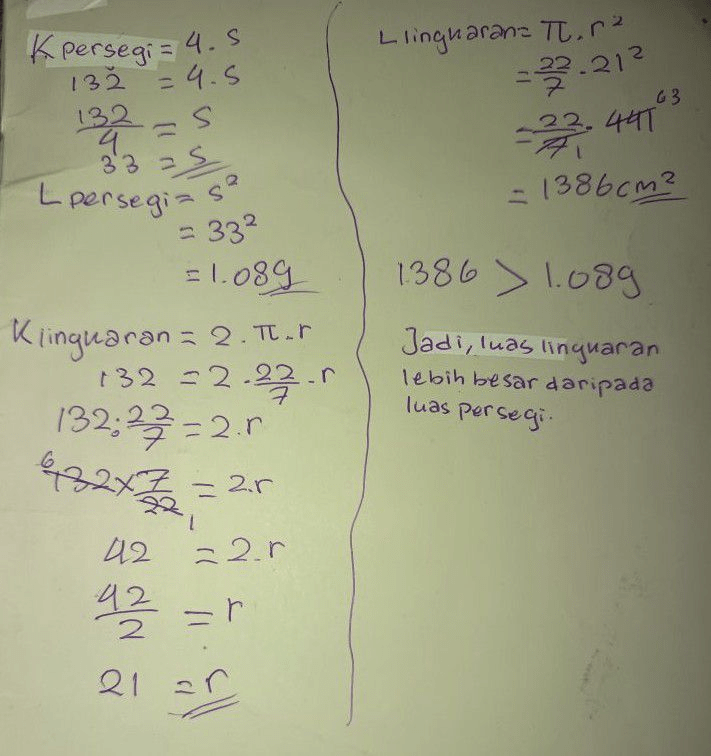 K persegi = 4 . s
132 = 4 . s
132/4 = s
33 = s
L persegi = s²
= 33²
= 1.089
K lingkaran = 2 . π . r
132 = 2 . 22/7 . r
132 : 22/7 = 2 . r
6 132 x 7/22 1 = 2 . r
42 = 2 . r
42/2 = r
21 = r
L lingkaran = π . r²
= 22/7 . 21²
= 22/7 1 . 441 63
= 1386 cm²
1386 > 1.089
Jadi, luas lingkaran
lebih besar daripada
luas persegi.